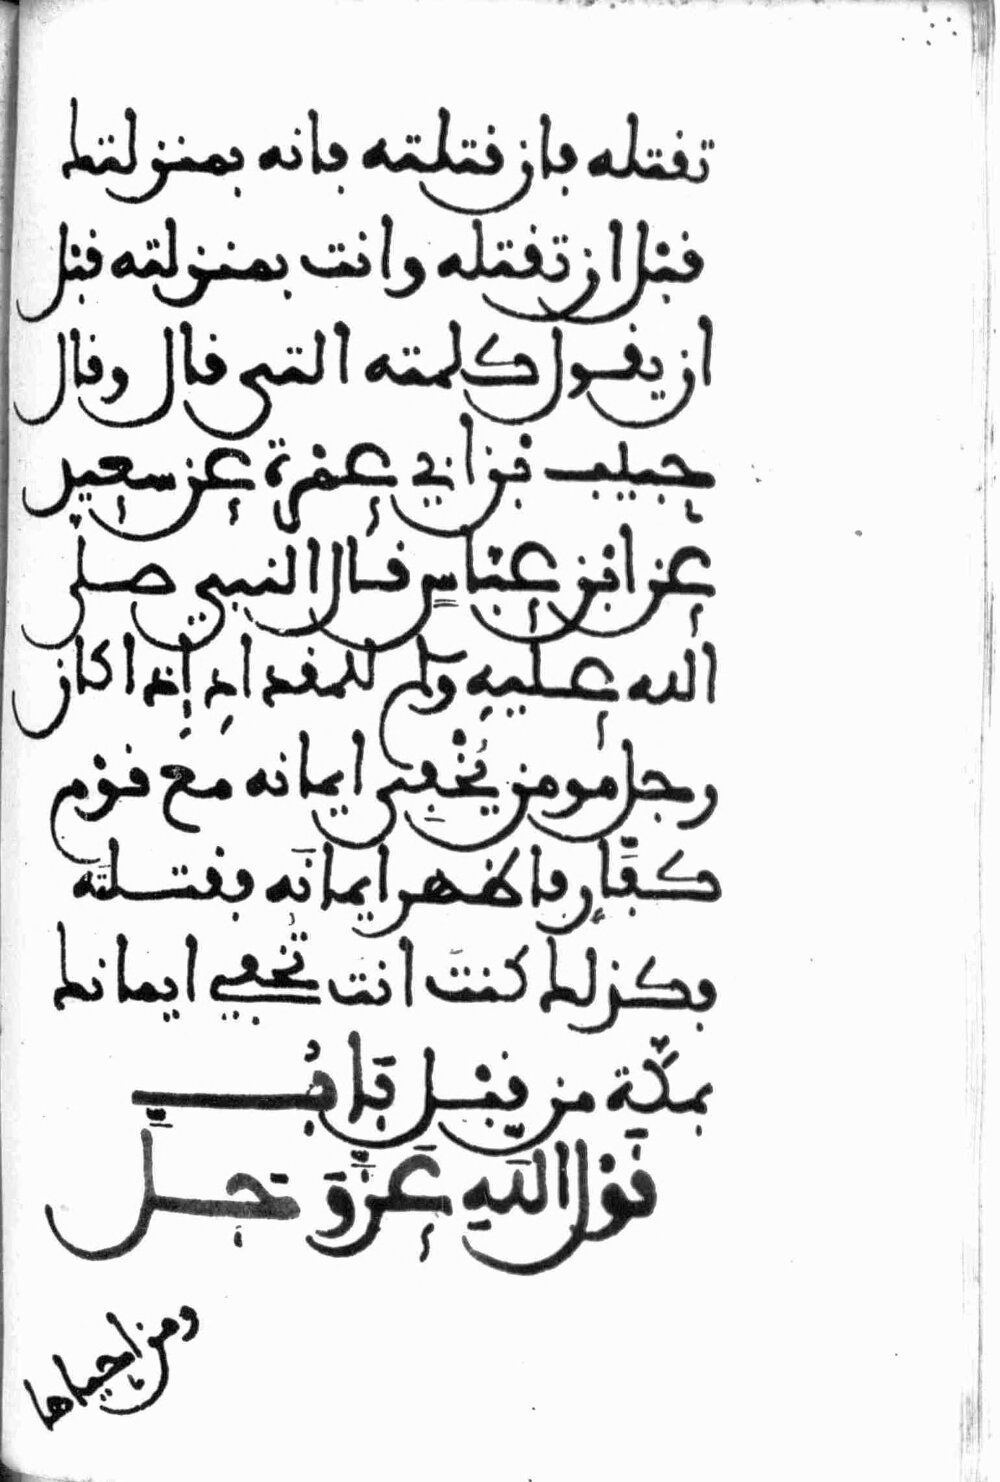 تقتله فإن قتلته فإنه بمنزلتك
قبل ان تقتله وانت بمنزلته قبل
ان يقول كلمته التي قال وقال
حبيب بن ابي عمرة عن سعيد
عن ابن عباس قال النبي صلى
الله عليه وسلم للمقداد إذا كان
رجل مومن يخفي ايمانه مع قوم
كفار فاظهر ايمانه فقتلته
فكذلك كنت انت تخفي ايمانك
بمكة من قبل باب
قول الله عز وجل
ومن احياها